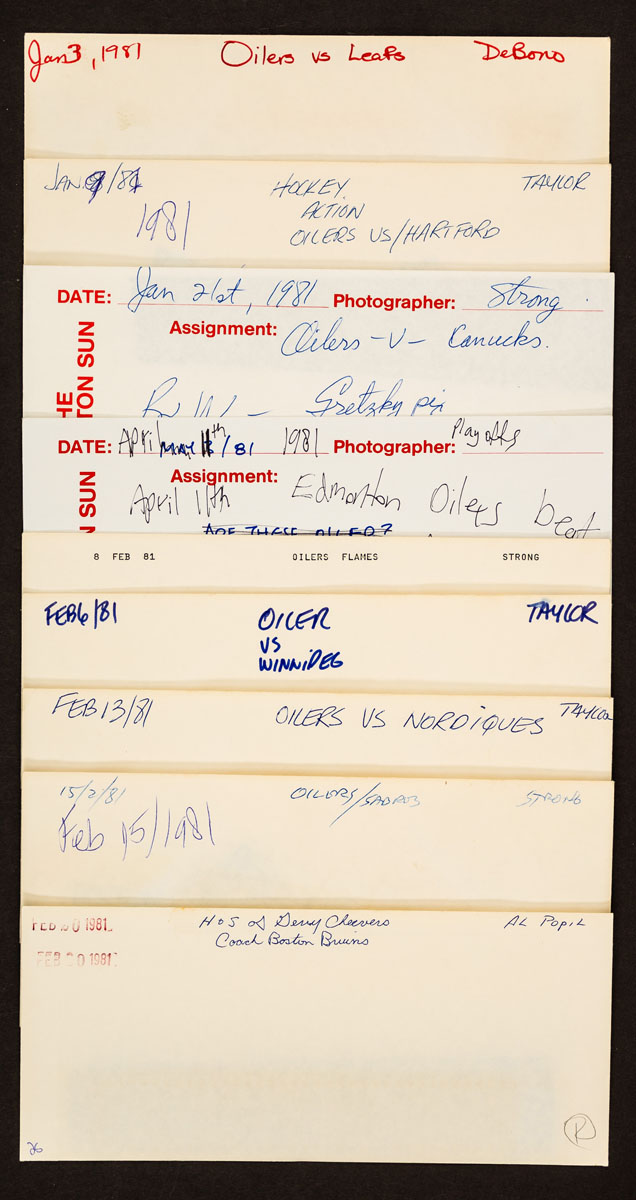 Jan 3, 1981 Oilers vs Leafs DeBono
JAN. 9/81 HOCKEY TAYLOR
1981 ACTION
OILERS VS/HARTFORD
DATE: Jan 21st, 1981 Photographer: Strong
THE
TON SUN
Assignment: Oilers - V - Canucks.
Gretzky pix
DATE: April 11th 1981 Photographer: Playoffs
/81
N SUN
Assignment: Edmonton Oilers beat
April 11th
ARE THESE OILERS?
8 FEB 81 OILERS FLAMES STRONG
FEB 6/81 OILER TAYLOR
VS
WINNIPEG
FEB 13/81 OILERS VS NORDIQUES TAYLOR
15/2/81 OILERS/SABRES STRONG
Feb 15/1981
FEB 20 1981 H+S of Gerry Cheevers AL Popil
Coach Boston Bruins
FEB 20 1981
R
26